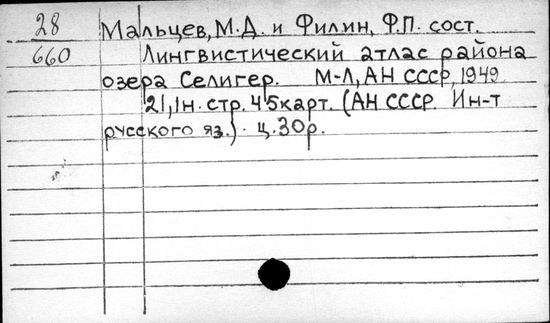 28 Мальцев, М.Д. и Филин, Ф.П. сост.
660 Лингвистический атлас района
озера Селигер. М-Л, АН СССР, 1949
21, 1н. стр. 45 карт. (АН СССР. Ин-т
русского яз.). ц. 30р.